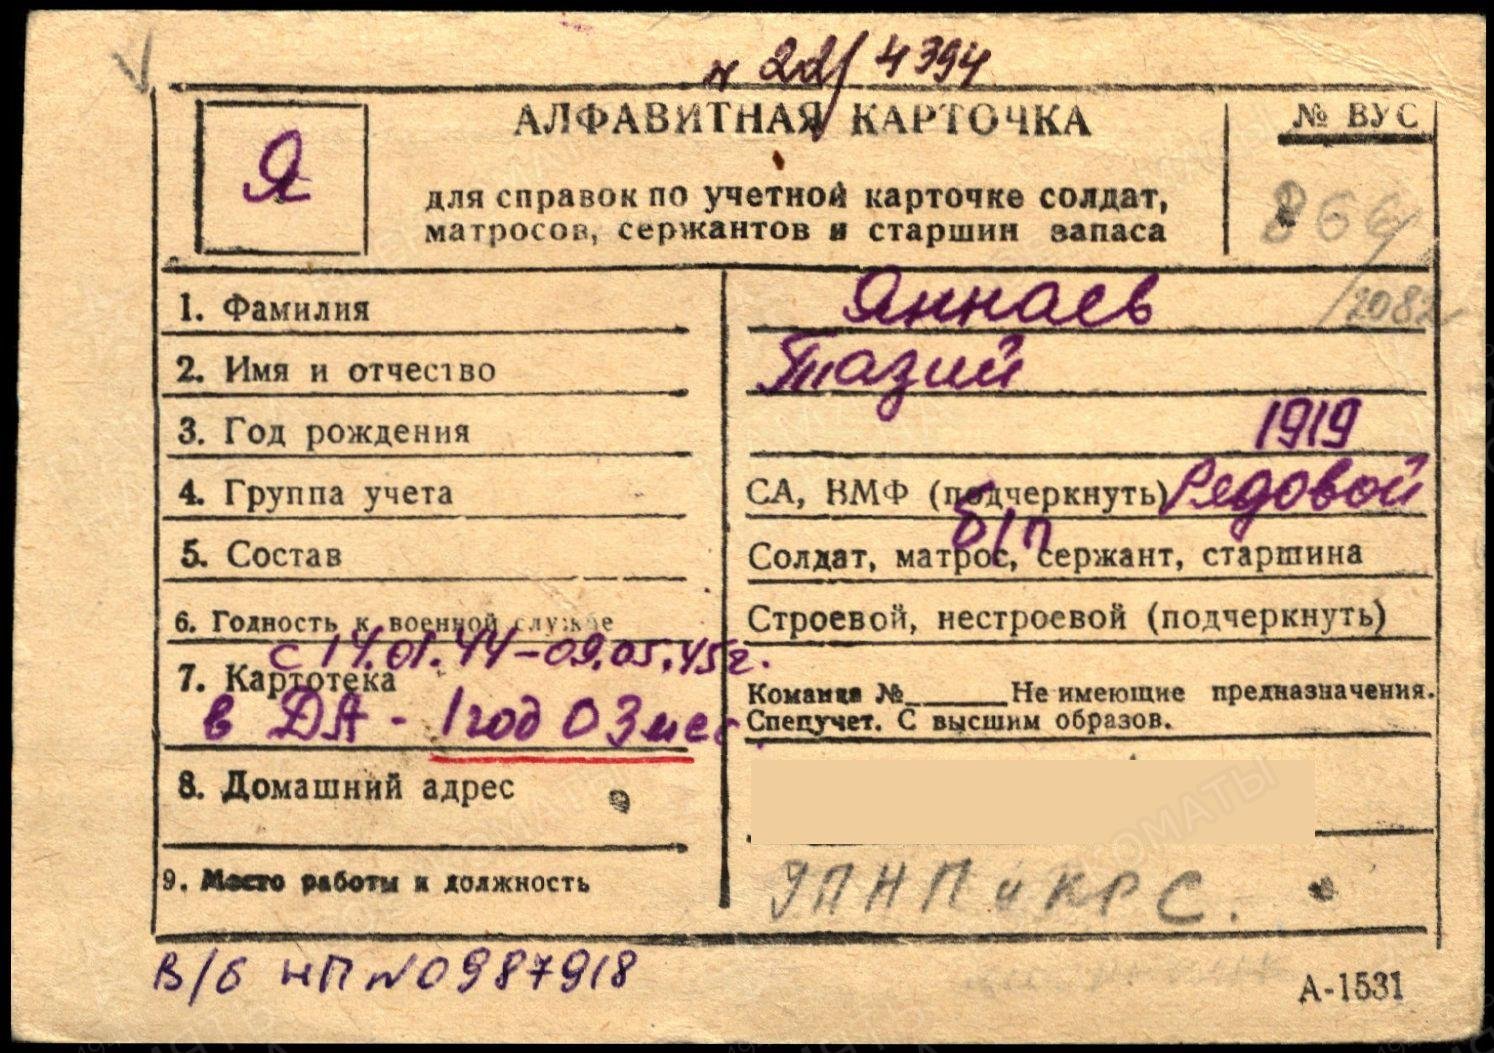 N 22/4394
Я
АЛФАВИТНАЯ КАРТОЧКА
№ ВУС
для справок по учетной карточке солдат,
матросов, сержантов и старшин запаса
866/2082
1. Фамилия
Яннаев
2. Имя и отчество
Тазий
3. Год рождения
1919
4. Группа учета
СА, ВМФ (подчеркнуть) Рядовой
б/п
5. Состав
Солдат, матрос, сержант, старшина
6. Годность к военной службе
Строевой, нестроевой (подчеркнуть)
с 14.01.44-09.05.45г.
7. Картотека
в ДА - 1 год 03 мес.
Команда № Не имеющие предназначения.
Спецучет. С высшим образов.
8. Домашний адрес
9. Место работы и должность
УПНП и КРС.
В/б НП N 0987918
А-1531